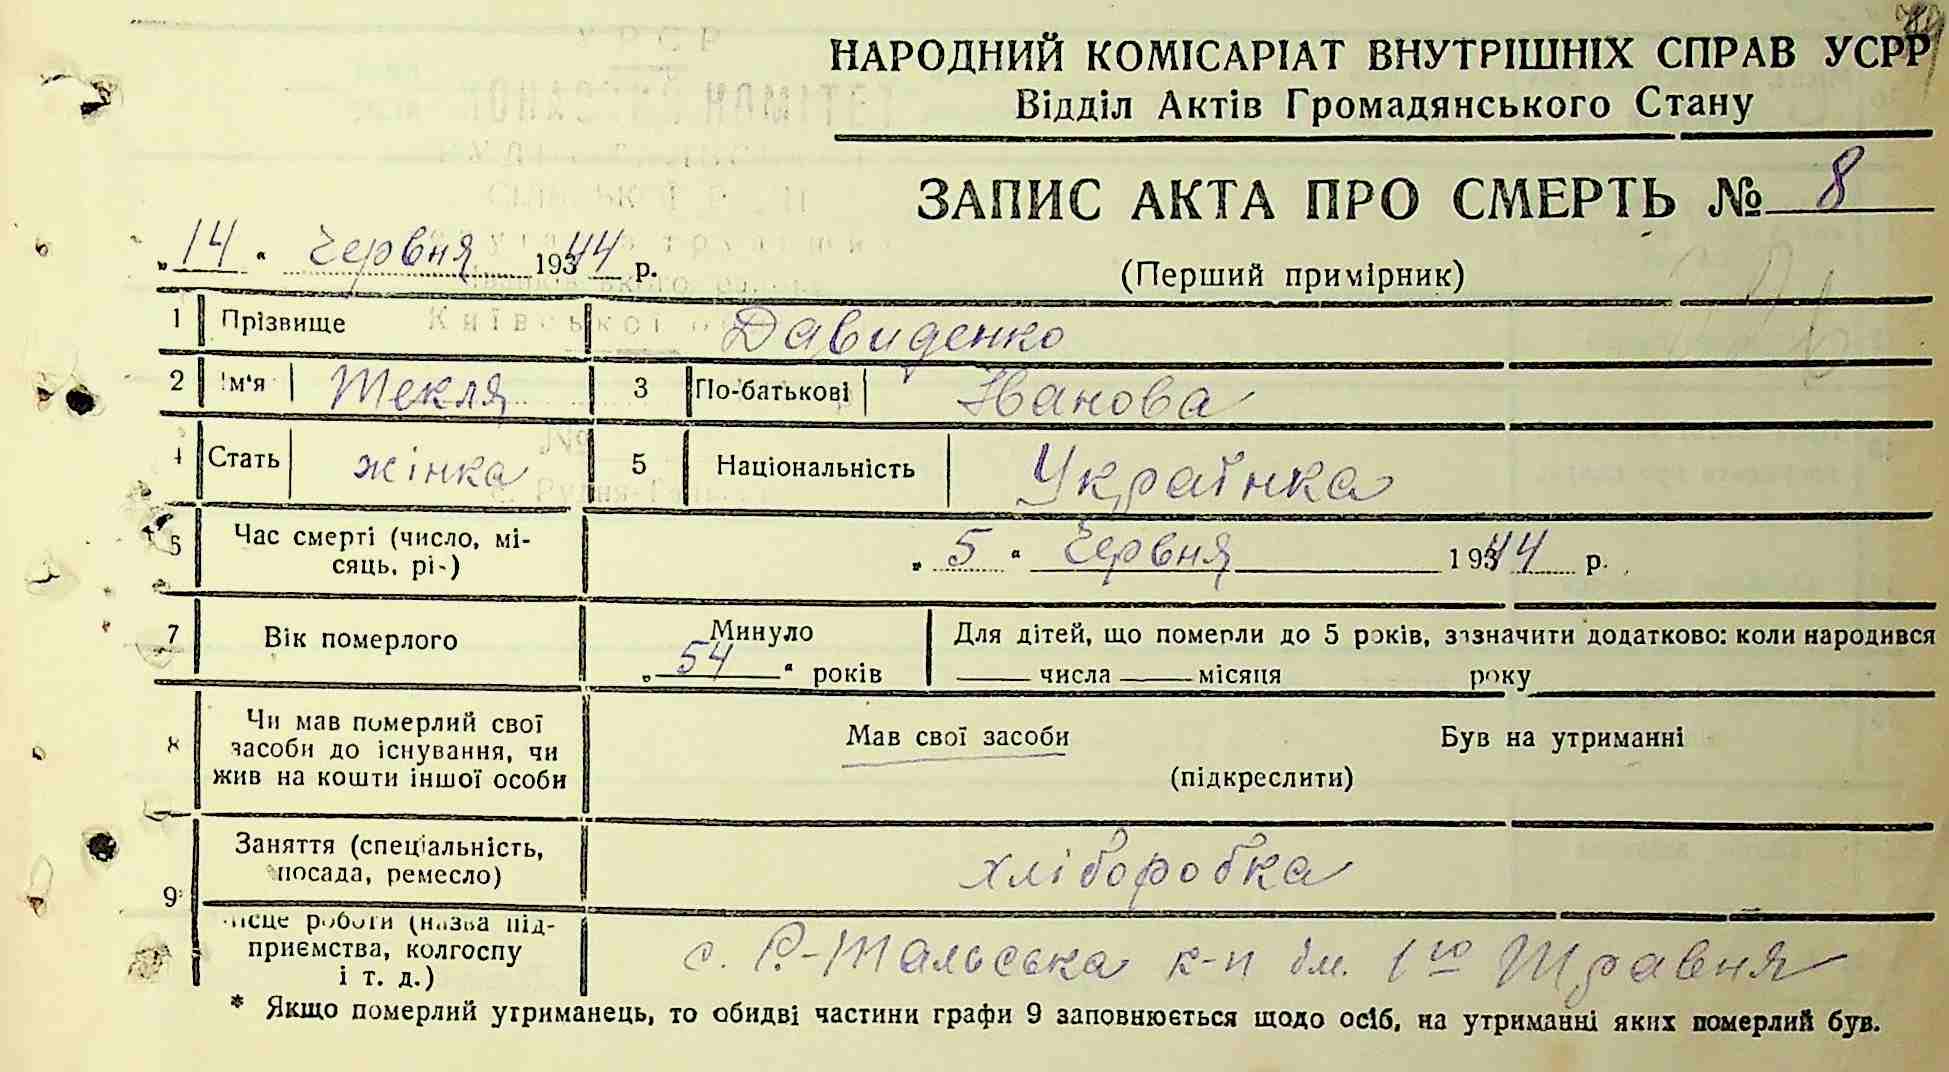 НАРОДНИЙ КОМІСАРІАТ ВНУТРІШНІХ СПРАВ УСРР
Відділ Актів Громадянського Стану
ЗАПИС АКТА ПРО СМЕРТЬ № 8
„14“ Червня 1944 р.
(Перший примірник)
1 Прізвище Давиденко
2 Ім'я Текля 3 По-батькові Іванова
4 Стать жінка 5 Національність Українка
6 Час смерті (число, мі-
сяць, рік)
„5“ Червня 1944 р.
7 Вік померлого
Минуло
„54“ років
Для дітей, що померли до 5 років, зазначити додатково: коли народився
числа місяця року
8 Чи мав померлий свої
засоби до існування, чи
жив на кошти іншої особи
Мав свої засоби Був на утриманні
(підкреслити)
9* Заняття (спеціальність,
посада, ремесло)
хліборобка
Місце роботи (назва під-
приємства, колгоспу
і т. д.)
с. Р.-Тальська к-п ім. 1го Травня
* Якщо померлий утриманець, то обидві частини графи 9 заповнюється щодо осіб, на утриманні яких померлий був.